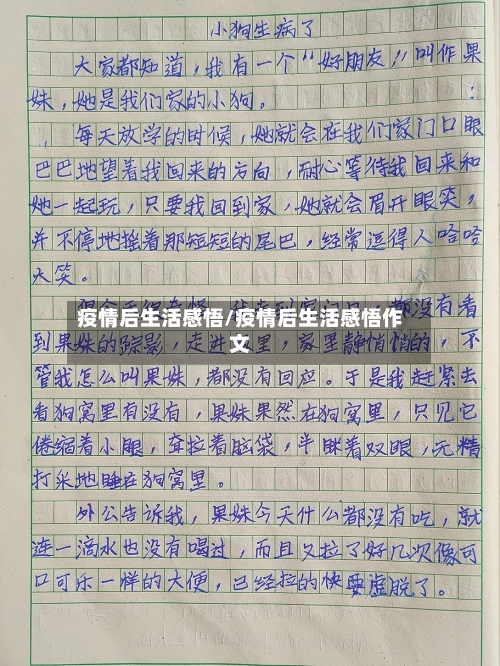 小狗生病了
大家都知道，我有一个“好朋友”叫作果
妹，她是我们家的小狗。
每天放学的时候，她就会在我们家门口眼
巴巴地望着我回来的方向，耐心等待我回来和
她一起玩，只要我回到家，她就会眉开眼笑，
并不停地摇着那短短的尾巴，经常逗得人哈哈
大笑。
都没有看
疫情后生活感悟/疫情后生活感悟作
文
到果妹的踪影，走进 里，家里静悄悄的，不
管我怎么叫果妹，都没有回应。于是我赶紧去
看狗窝里有没有，果妹果然在狗窝里，只见它
倦缩着小腿，耷拉着脑袋，半眯着双眼，无精
打采地睡在狗窝里。
外公告诉我，果妹今天什么都没有吃，就
连一滴水也没有喝过，而且又拉了好几次像可
口可乐一样的大便，已经拉的快要虚脱了。